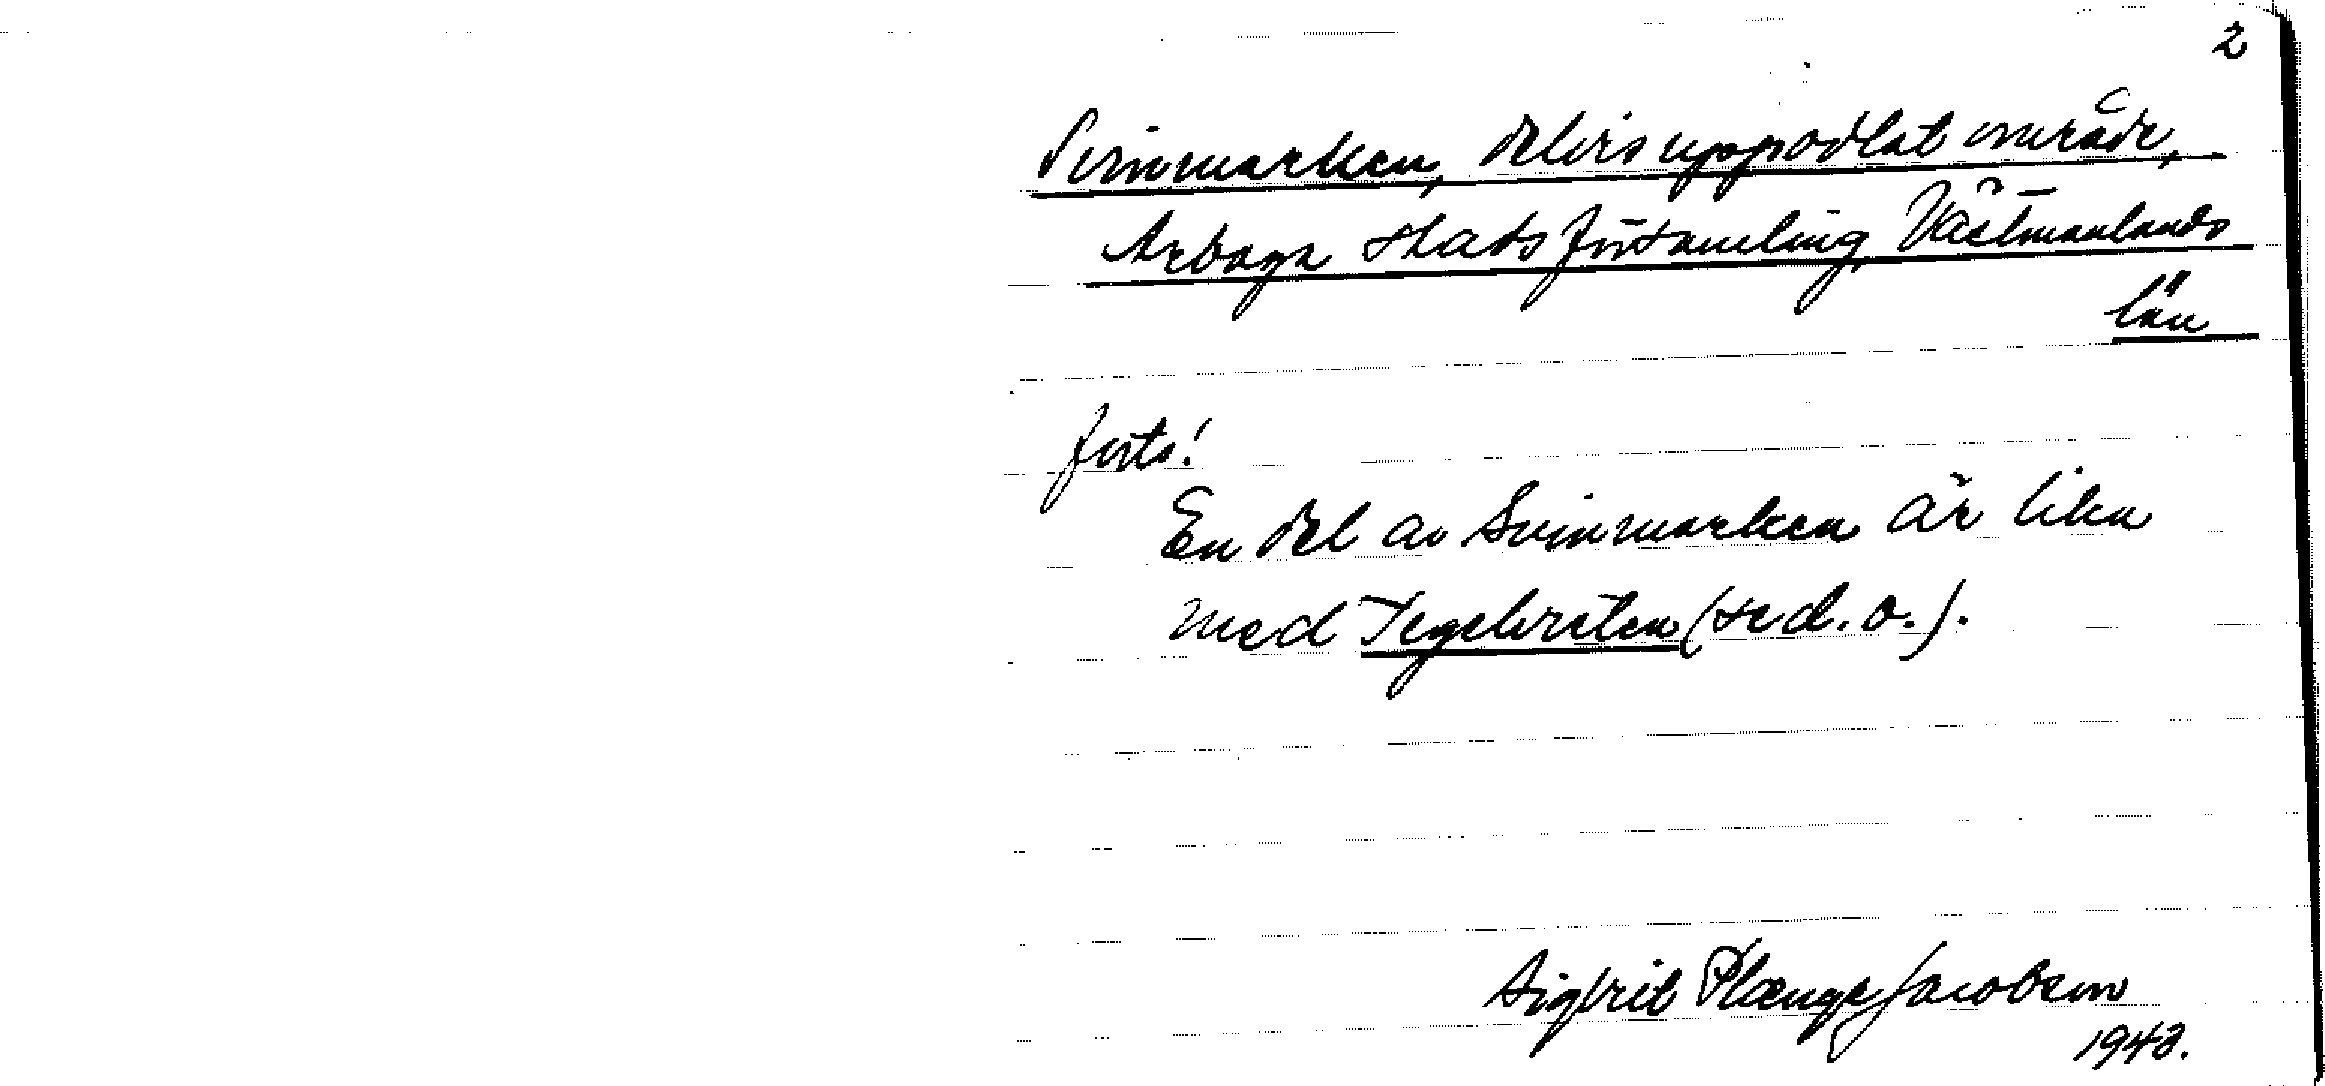 2
Svinmarken, delvis uppodlat område,
Arboga stadsförsamling, Västmanlands
län
forts!
En del av Svinmarken är lika
med Tegelvreten (se d. o.).
Sigbrit Plænge Jacobson
1943.